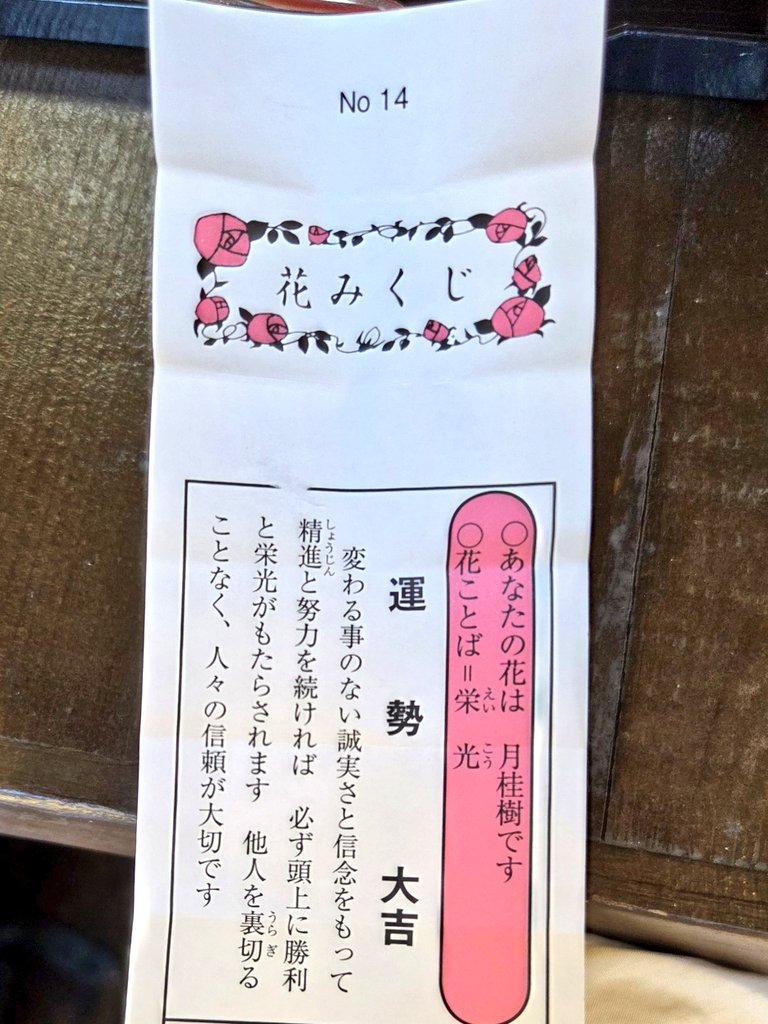 No 14
花みくじ
○あなたの花は　月桂樹です
○花ことば＝栄光
えいこう
運勢　大吉
変わる事のない誠実さと信念をもって
精進と努力を続ければ　必ず頭上に勝利
しょうじん
と栄光がもたらされます　他人を裏切る
うらぎ
ことなく、人々の信頼が大切です